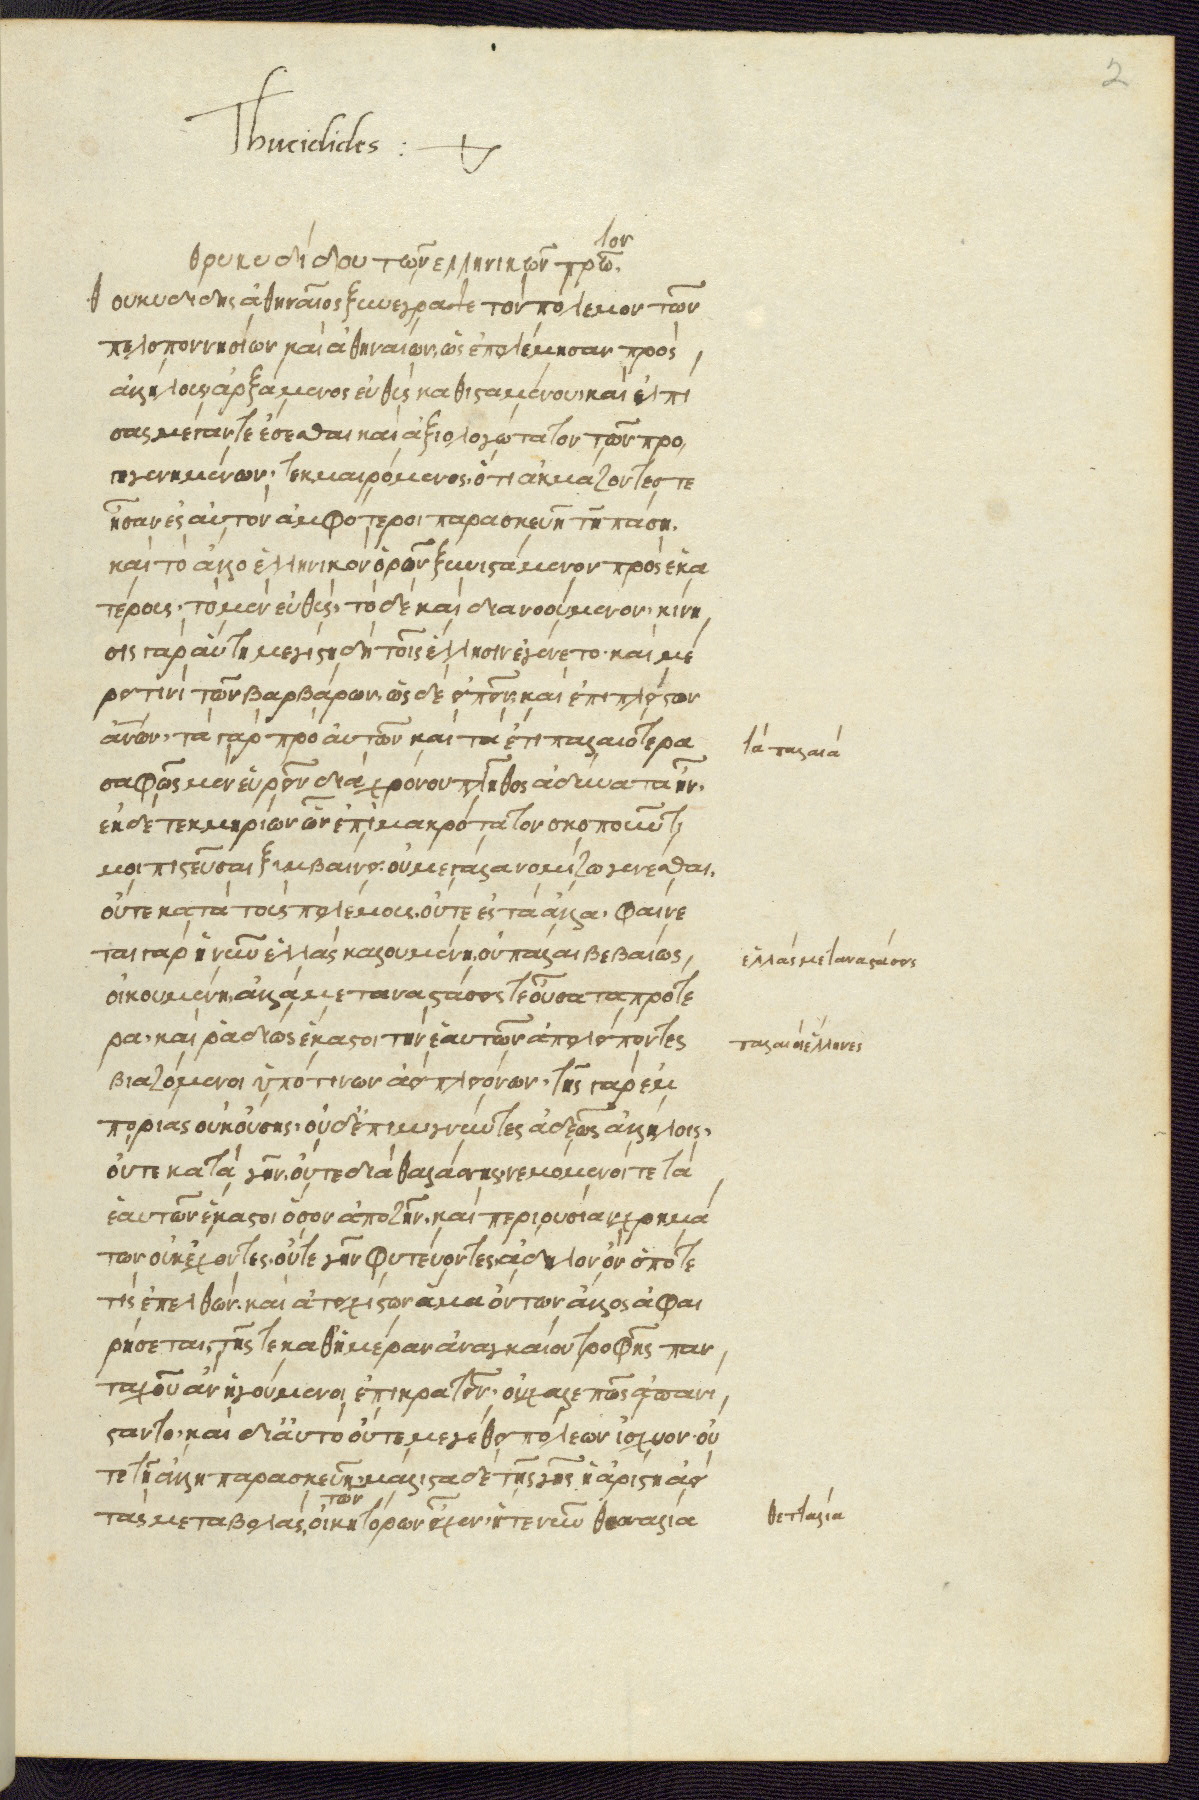 2
Thucidides :
θουκυδίδου τῶν ἑλληνικῶν πρῶτον.
θουκυδίδης ἀθηναῖος ξυνέγραψε τὸν πόλεμον τῶν
πελοποννησίων καὶ ἀθηναίων, ὡς ἐπολέμησαν πρὸς
ἀλλήλους, ἀρξάμενος εὐθὺς καθισταμένου, καὶ ἐλπί
σας μέγαν τε ἔσεσθαι καὶ ἀξιολογώτατον τῶν προ
γεγενημένων, τεκμαιρόμενος, ὅτι ἀκμάζοντές τε
ἦσαν ἐς αὐτὸν ἀμφότεροι παρασκευῇ τῇ πάσῃ.
καὶ τὸ ἄλλο ἑλληνικὸν ὁρῶν ξυνιστάμενον πρὸς ἑκα
τέρους, τὸ μὲν εὐθὺς, τὸ δὲ καὶ διανοούμενον, κίνη
σις γὰρ αὕτη μεγίστη δὴ τοῖς ἕλλησιν ἐγένετο, καὶ μέ
ρει τινὶ τῶν βαρβάρων, ὡς δὲ εἰπεῖν, καὶ ἐπὶ πλεῖστον
ἀνων, τὰ γὰρ πρὸ αὐτῶν καὶ τὰ ἔτι παλαιότερα
τὰ παλαιά
σαφῶς μὲν εὑρεῖν διὰ χρόνου πλῆθος ἀδύνατα ἦν.
ἐκ δὲ τεκμηρίων ὧν ἐπὶ μακρότατον σκοποῦντί
μοι πιστεῦσαι ξυμβαίνει, οὐ μεγάλα νομίζω γενέσθαι.
οὔτε κατὰ τοὺς πολέμους, οὔτε ἐς τὰ ἄλλα. φαίνε
ται γὰρ ἡ νῦν ἑλλὰς καλουμένη, οὐ πάλαι βεβαίως
ἑλλὰς μεταναστάσεις
οἰκουμένη, ἀλλὰ μεταναστάσεις τε οὖσαι τὰ πρότε
ρα, καὶ ῥαδίως ἕκαστοι τὴν ἑαυτῶν ἀπολείποντες
παλαιοὶ ἕλληνες
βιαζόμενοι ὑπό τινων ἀεὶ πλειόνων, τῆς γὰρ ἐμ
πορίας οὐκ οὔσης, οὐδ' ἐπιμιγνύντες ἀδεῶς ἀλλήλοις,
οὔτε κατὰ γῆν, οὔτε διὰ θαλάσσης, νεμόμενοί τε τὰ
ἑαυτῶν ἕκαστοι ὅσον ἀποζῆν, καὶ περιουσίαν χρημά
των οὐκ ἔχοντες, οὔτε γῆν φυτεύοντες, ἄδηλον ὂν ὁπότε
τις ἐπελθὼν, καὶ ἀτειχίστων ἅμα ὄντων ἄλλος ἀφαι
ρήσεται, τῆς τε καθ' ἡμέραν ἀναγκαίου τροφῆς παν
ταχοῦ ἂν ἡγούμενοι ἐπικρατεῖν, οὐ χαλεπῶς ἀπανί
σταντο, καὶ δι' αὐτὸ οὔτε μεγέθει πόλεων ἴσχυον, οὔ
τε τῇ ἄλλῃ παρασκευῇ, μάλιστα δὲ τῆς γῆς ἡ ἀρίστη ἀεὶ
τὰς μεταβολὰς τῶν οἰκητόρων εἶχεν, ἥ τε νῦν θεσσαλία
θετταλία